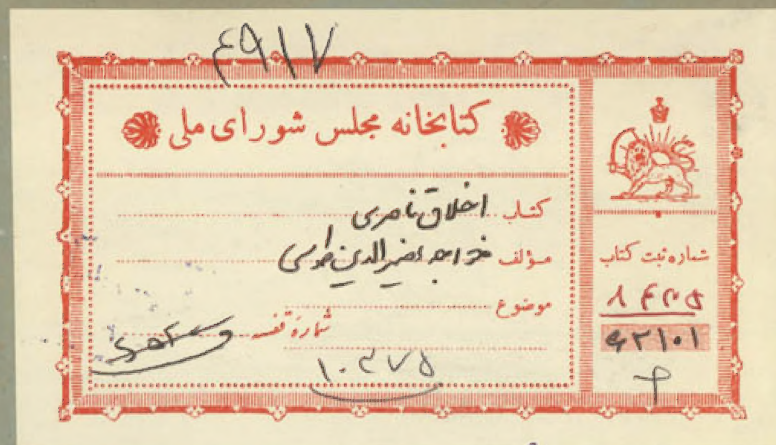 ۴۹۱۷
کتابخانه مجلس شورای ملی
کتاب اخلاق ناصری
مؤلف خواجه نصیرالدین طوسی
موضوع
شمارهٔ قفسه
۱۰۳۷۵
شماره ثبت کتاب
۶۲۱۰۱